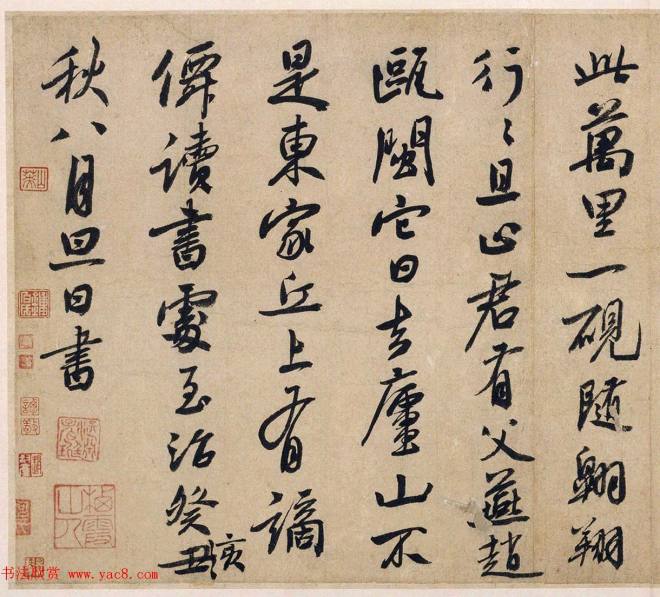 此萬里一硯隨翱翔
行〻且止君有父燕趙
甌閩它日去廬山不
是東家丘上有謫
僊讀書處至治癸丑亥
秋八月旦日書
书法欣赏 www.yac8.com